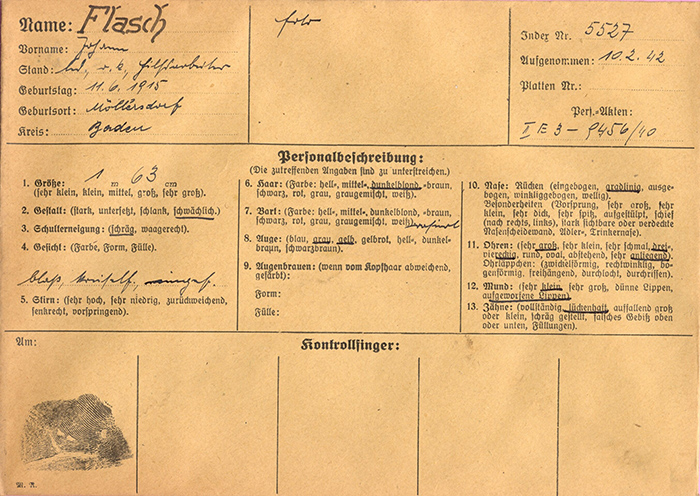 Name: Flasch
Vorname: Johann
Stand: led., r. k., Hilfsarbeiter
Geburtstag: 11.6.1915
Geburtsort: Möllersdorf
Kreis: Baden
Index Nr. 5527
Aufgenommen: 10.2.42
Platten Nr.:
Pers.-Akten:
I E 3 - 9456/40
Personalbeschreibung:
(Die zutreffenden Angaben sind zu unterstreichen.)
1. Größe: 1 m 63 cm
(sehr klein, klein, mittel, groß, sehr groß).
2. Gestalt: (stark, untersetzt, schlank, schwächlich.)
3. Schulterneigung: (schräg, waagerecht).
4. Gesicht: (Farbe, Form, Fülle).
blaß,
5. Stirn: (sehr hoch, sehr niedrig, zurückweichend,
senkrecht, vorspringend).
6. Haar: (Farbe: hell-, mittel-, dunkelblond, -braun,
schwarz, rot, grau, graugemischt, weiß).
7. Bart: (Farbe: hell-, mittel-, dunkelblond, -braun,
schwarz, rot, grau, graugemischt, weiß)
8. Auge: (blau, grau, gelb, gelbrot, hell-, dunkel-
braun, schwarzbraun).
9. Augenbrauen: (wenn vom Kopfhaar abweichend,
gefärbt):
Form:
Fülle:
10. Nase: Rücken (eingebogen, gradlinig, ausge-
bogen, winkliggebogen, wellig).
Besonderheiten (Vorsprung, sehr groß, sehr
klein, sehr dick, sehr spitz, aufgestülpt, schief
(nach rechts, links), stark sichtbare oder verdeckte
Nasenscheidewand, Adler-, Trinkernase).
11. Ohren: (sehr groß, sehr klein, sehr schmal, drei-
viereckig, rund, oval, abstehend, sehr anliegend).
Ohrläppchen: (zwickelförmig, rechtwinklig, bo-
genförmig, freihängend, durchlocht, durchrissen).
12. Mund: (sehr klein, sehr groß, dünne Lippen,
aufgeworfene Lippen).
13. Zähne: (vollständig, lückenhaft, auffallend groß
oder klein, schräg gestellt, falsches Gebiß oben
oder unten, Füllungen).
Am:
Kontrollfinger:
M. A.